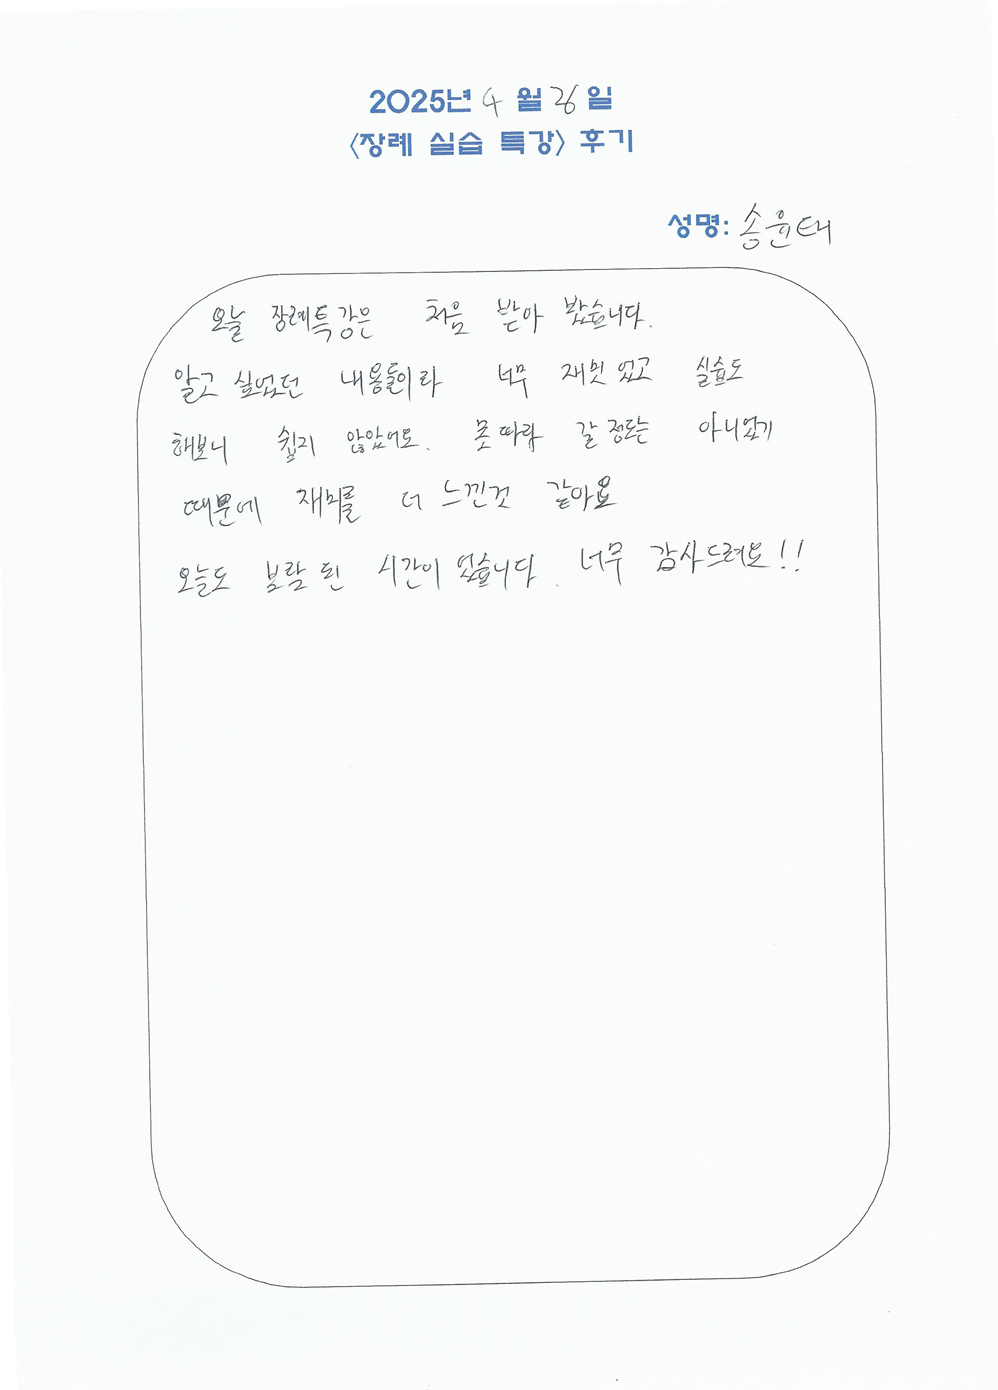 2025년 4 월 26 일
<장례 실습 특강> 후기
성명: 송윤태
오늘 장례특강은 처음 받아 봤습니다.
알고 싶었던 내용들이라 너무 재밋었고 실습도
해보니 쉽지 않았어요. 못 따라 갈 정도는 아니었기
때문에 재미를 더 느낀것 같아요
오늘도 보람 된 시간이 었습니다. 너무 감사드려요!!